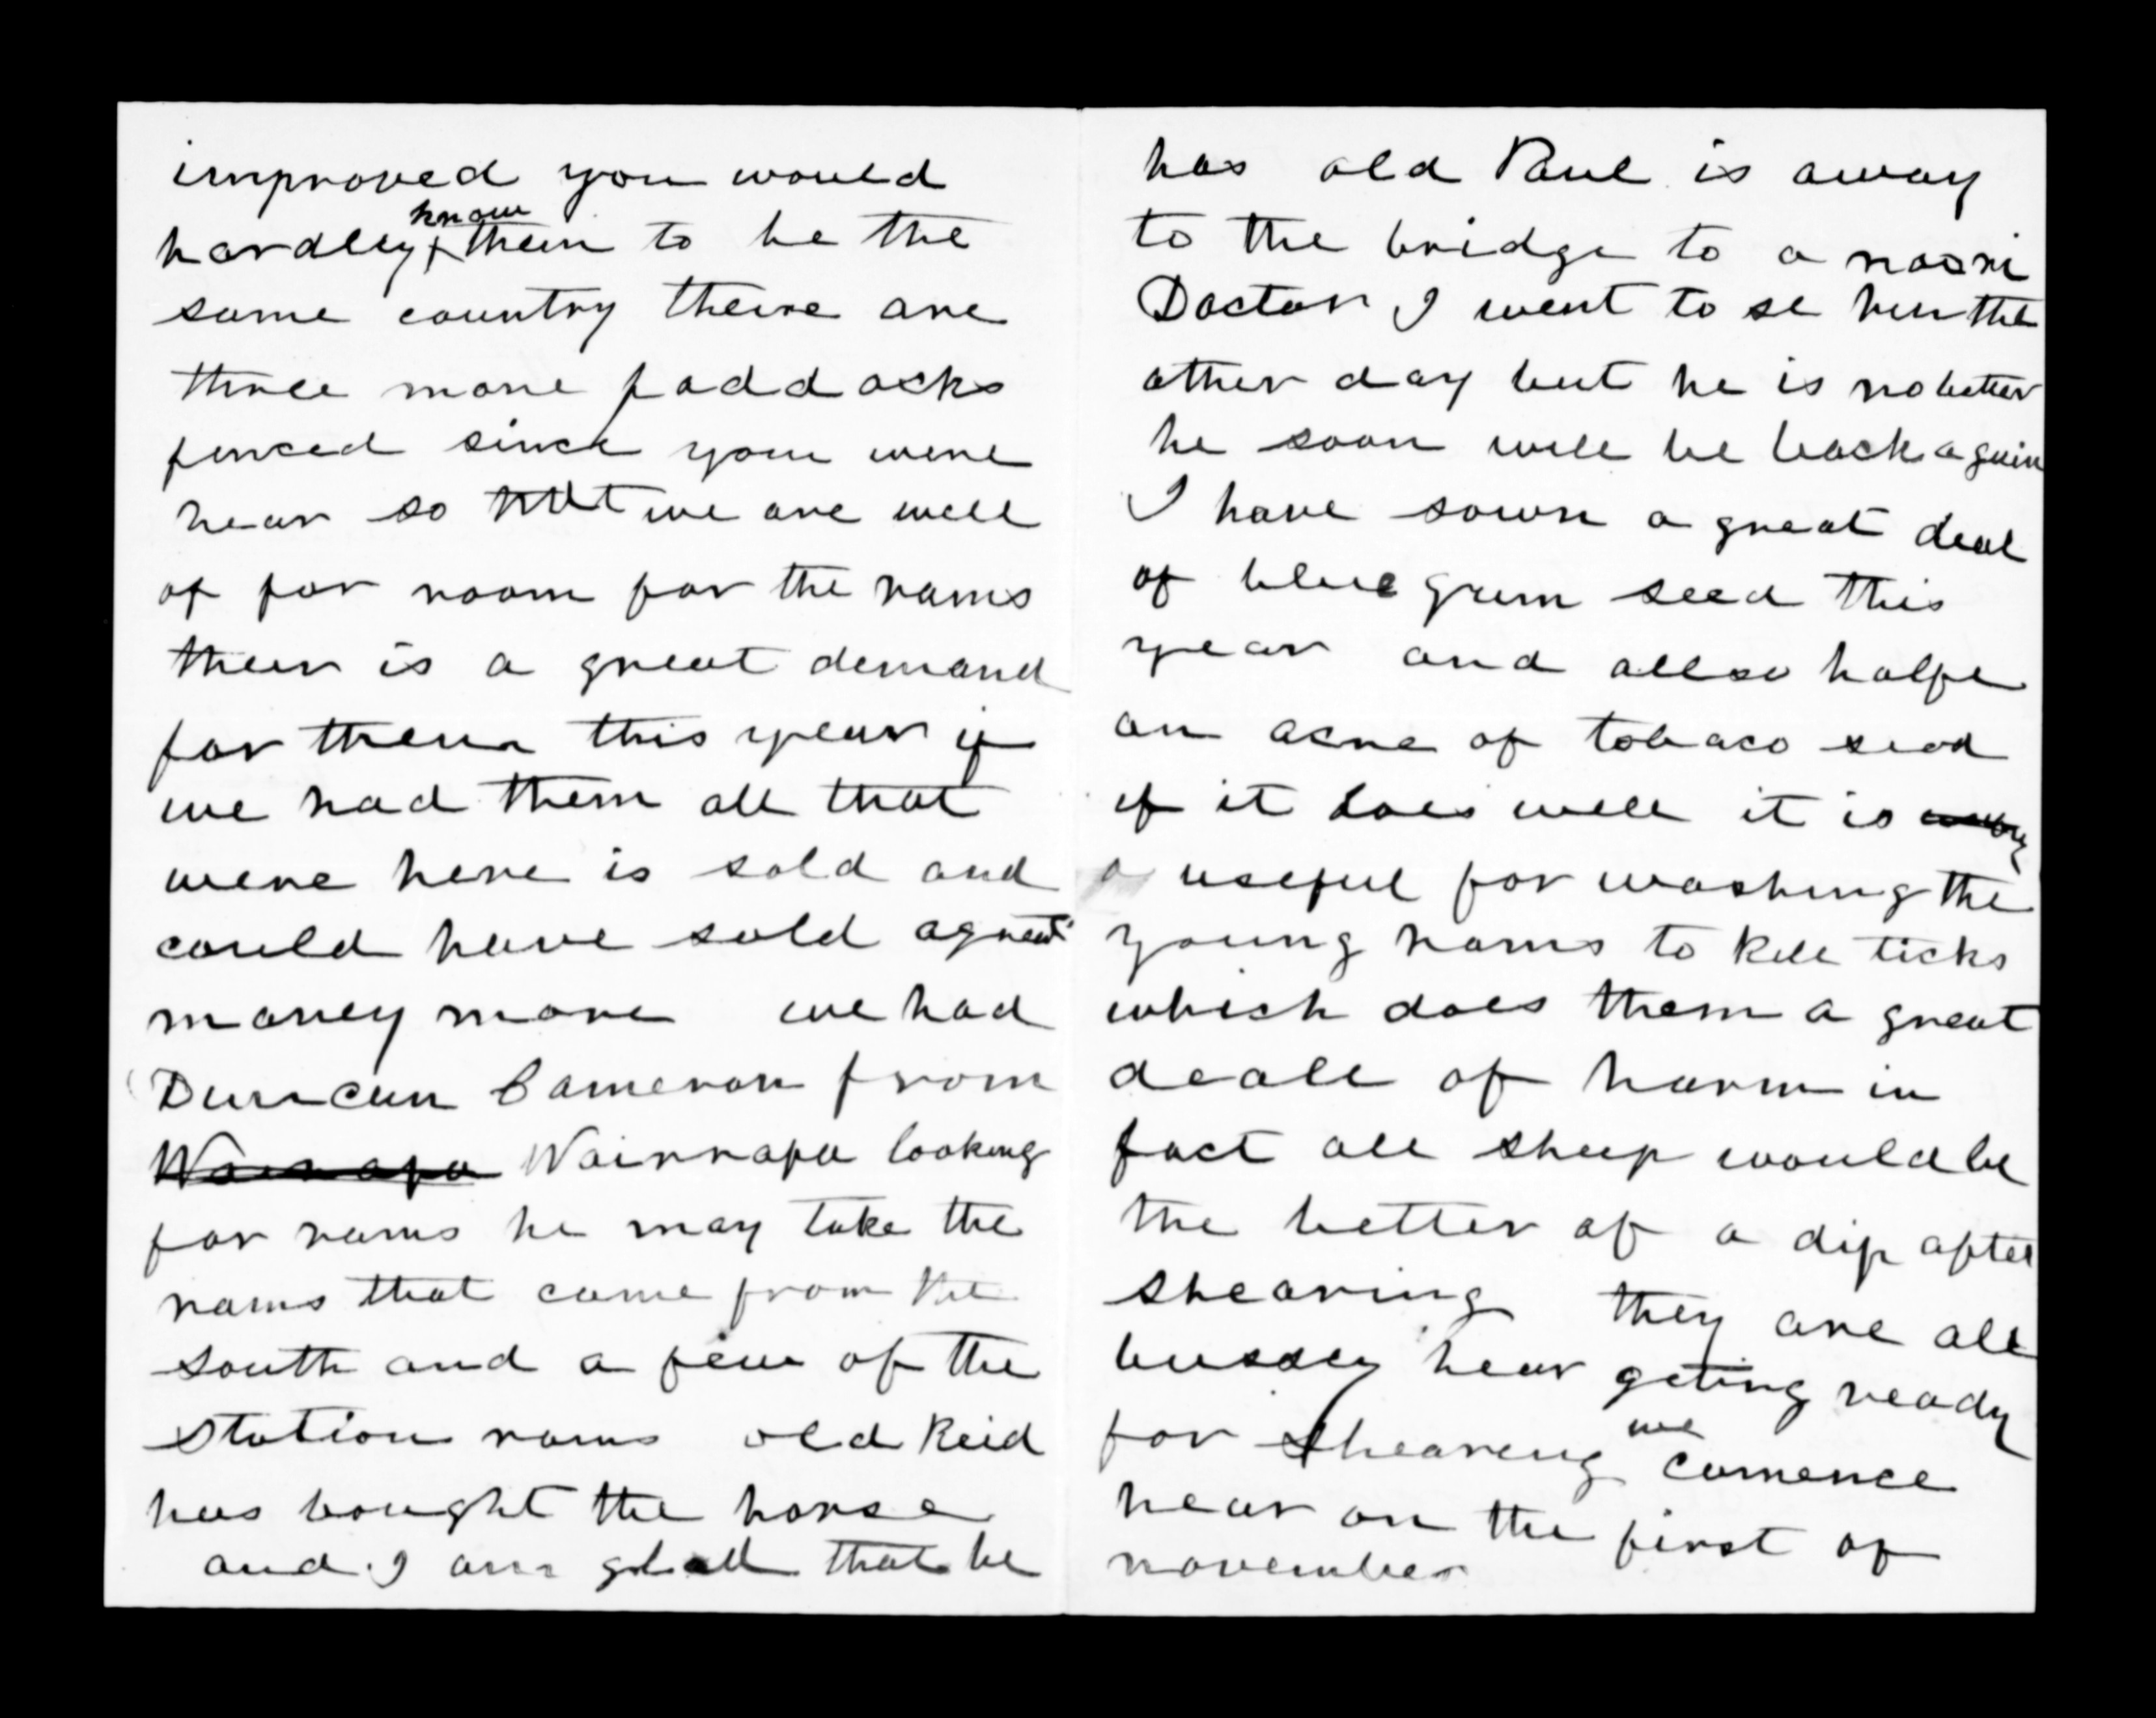 improved you would
hardly know them to be the
same country theire are
three more paddocks
fenced since you were
hear so that we are well
of for room for the rams
their is a great demand
for them this year if
we had them all that
were here is sold and
could have sold a great
maney more we had
Duncan Cameron from
Wairapa Wairrapa looking
for rams he may take the
rams that came from the
south and a few of the
Station rams old Reid
has bought the horse
and I am glad that he
has old Paul is away
to the bridge to a
Doctor I went to se him the
other day but he is no better
he soon will be back again
I have sown a great deal
of blue gum seed this
year and allso halfe
an acre of tobaco seed
if it does well it is
a useful for washing the
young rams to kill ticks
which does them a great
deall of harm in
fact all sheep would be
the better of a dip after
shearing they are all
bussey hear geting ready
for shearing we comence
hear on the first of
november